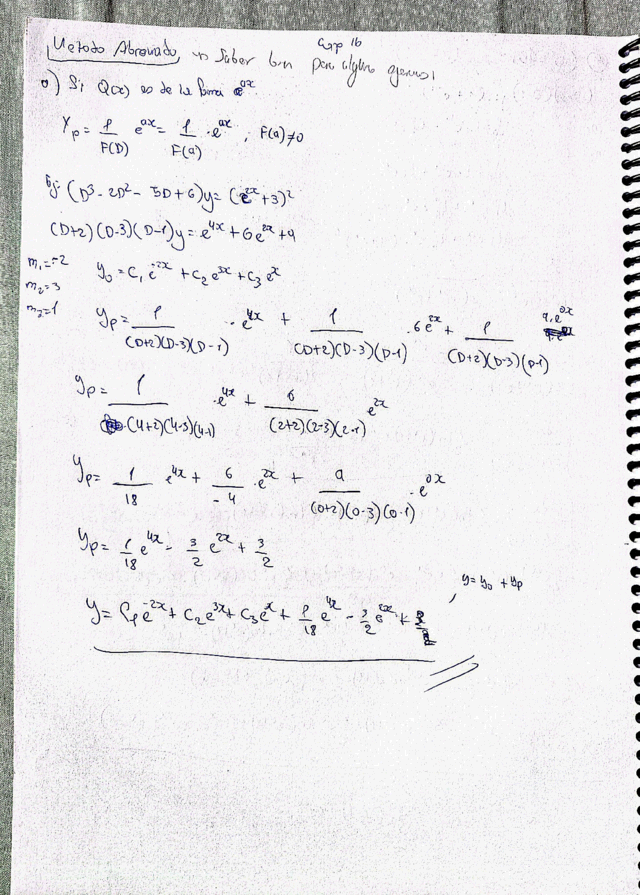 Cap 16
Metodo Abreviado → Saber bien para algunos ejercicios
o) Si Q(x) es de la forma e^{ax}
Y_p = 1/F(D) e^{ax} = 1/F(a) · e^{ax}, F(a) ≠ 0
Ej: (D³ - 2D² - 5D + 6)y = (e^{2x} + 3)²
(D+2)(D-3)(D-1)y = e^{4x} + 6e^{2x} + 9
m₁ = -2
m₂ = 3
m₃ = 1
y₀ = C₁e^{-2x} + C₂e^{3x} + C₃e^{x}
y_p = 1/((D+2)(D-3)(D-1)) · e^{4x} + 1/((D+2)(D-3)(D-1)) · 6e^{2x} + 1/((D+2)(D-3)(D-1)) 9·e^{0x}
y_p = 1/((4+2)(4-3)(4-1)) · e^{4x} + 6/((2+2)(2-3)(2-1)) e^{2x}
y_p = 1/18 e^{4x} + 6/-4 · e^{2x} + 9/((0+2)(0-3)(0-1)) · e^{0x}
y_p = 1/18 e^{4x} - 3/2 e^{2x} + 3/2
y = C₁e^{-2x} + C₂e^{3x} + C₃e^{x} + 1/18 e^{4x} - 3/2 e^{2x} + 3/2 , y = y₀ + y_p